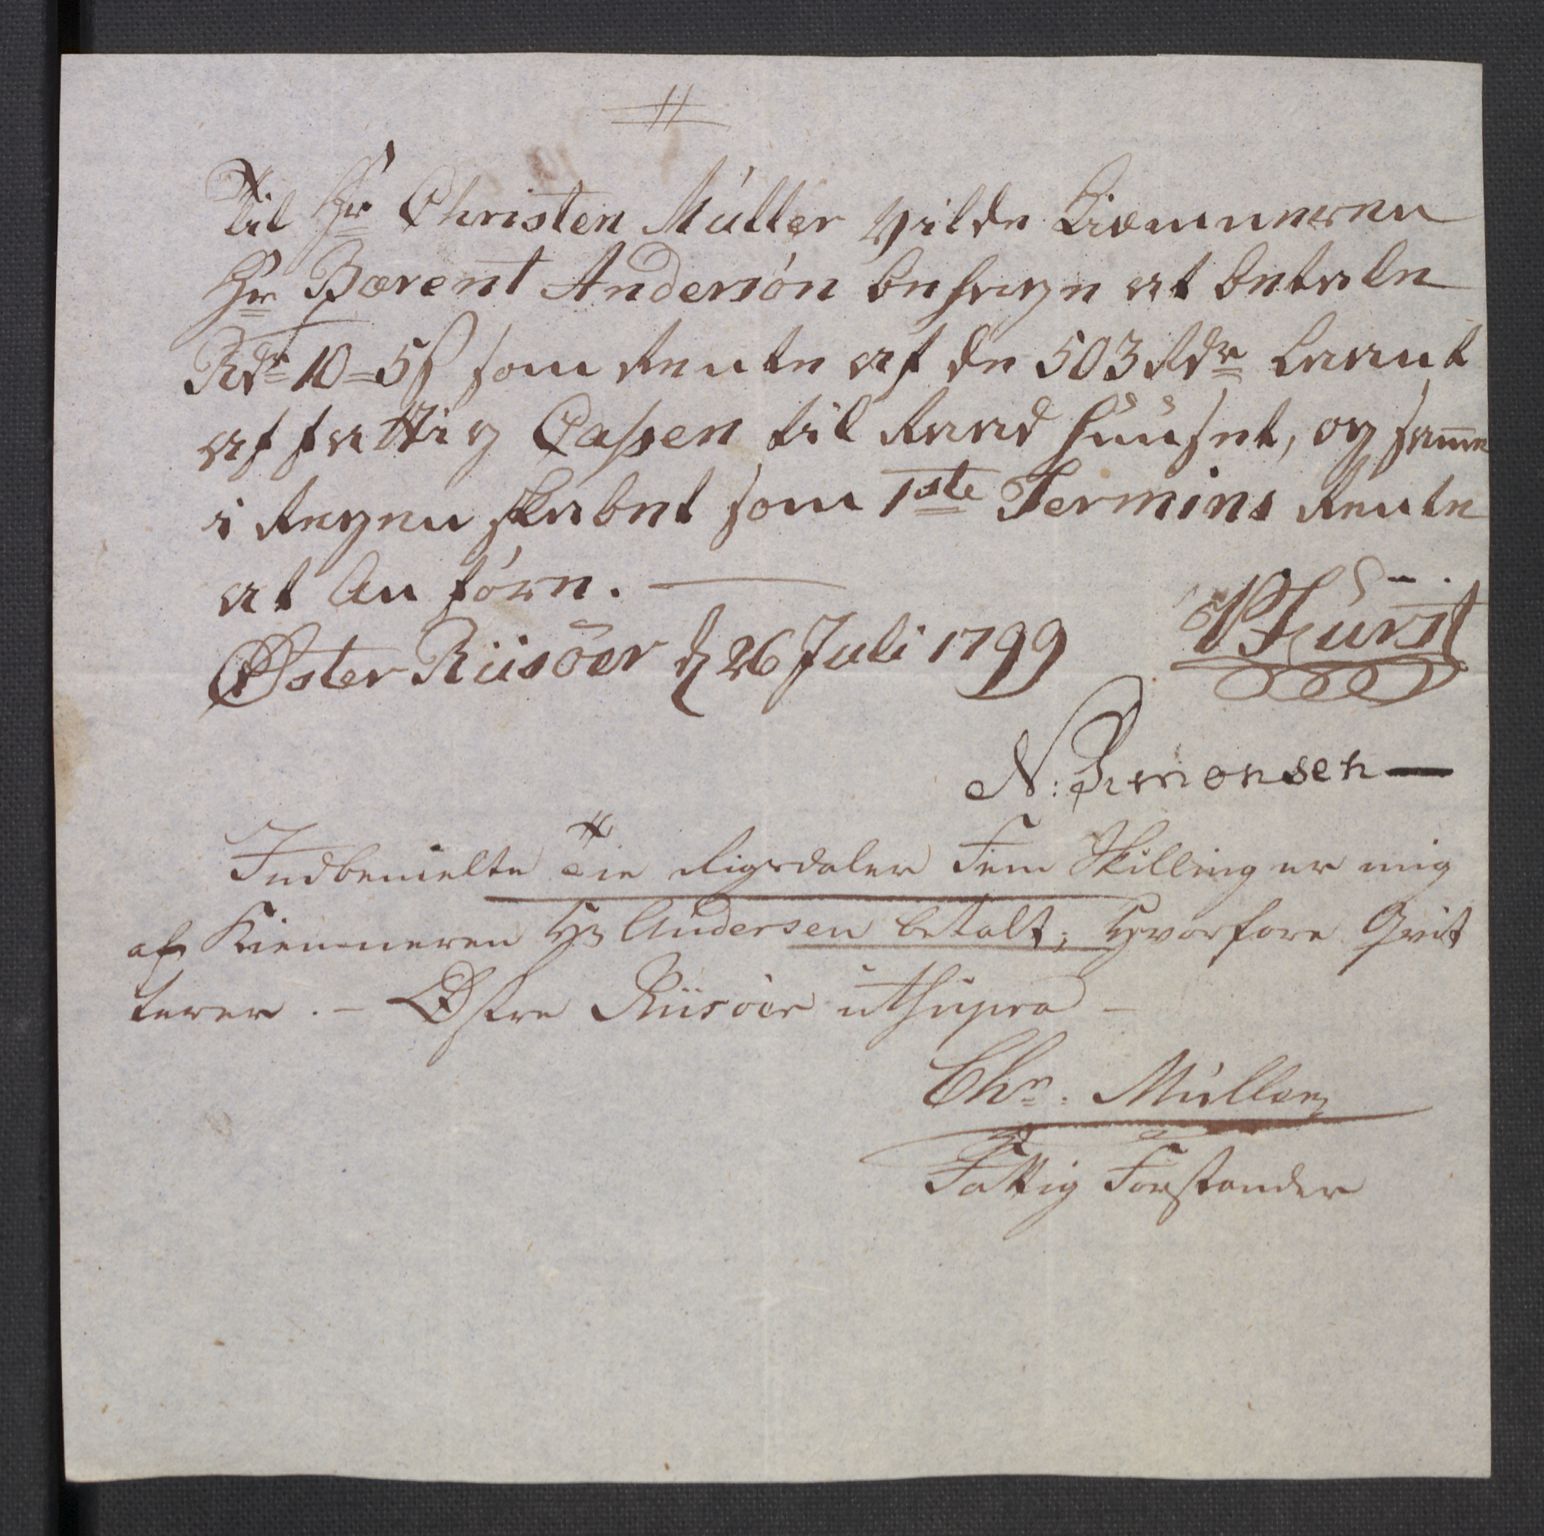 Til Hr Christen Müller vilde Kiæmneren
Hr Bærent Andersøn behage at betale
Rdr 10 = 5 s som Rente af de 503 Rdr laant
af fattig Cassen til Raad Huuset, og samme
i Regnskabet som 1ste Termins Rente
at Anføre. —
Øster Riisöer d 26 Juli 1799
N: Simonsen —
Indbemelte Tie Rigsdaler Fem Skilling er mig
af Kiemneren Hr Andersen betalt; Hvorfore Qvit
terer . — Østre Riisöer ut Supra —
Chr. Müller
Fattig Forstander